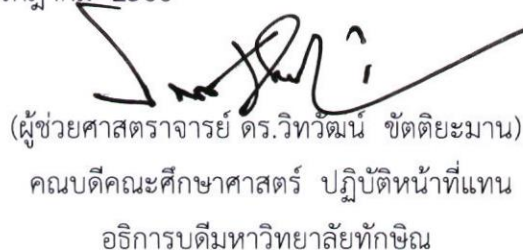 (ผู้ช่วยศาสตราจารย์ ดร.วิทวัฒน์ ขัตติยะมาน)
คณบดีคณะศึกษาศาสตร์ ปฏิบัติหน้าที่แทน
อธิการบดีมหาวิทยาลัยทักษิณ